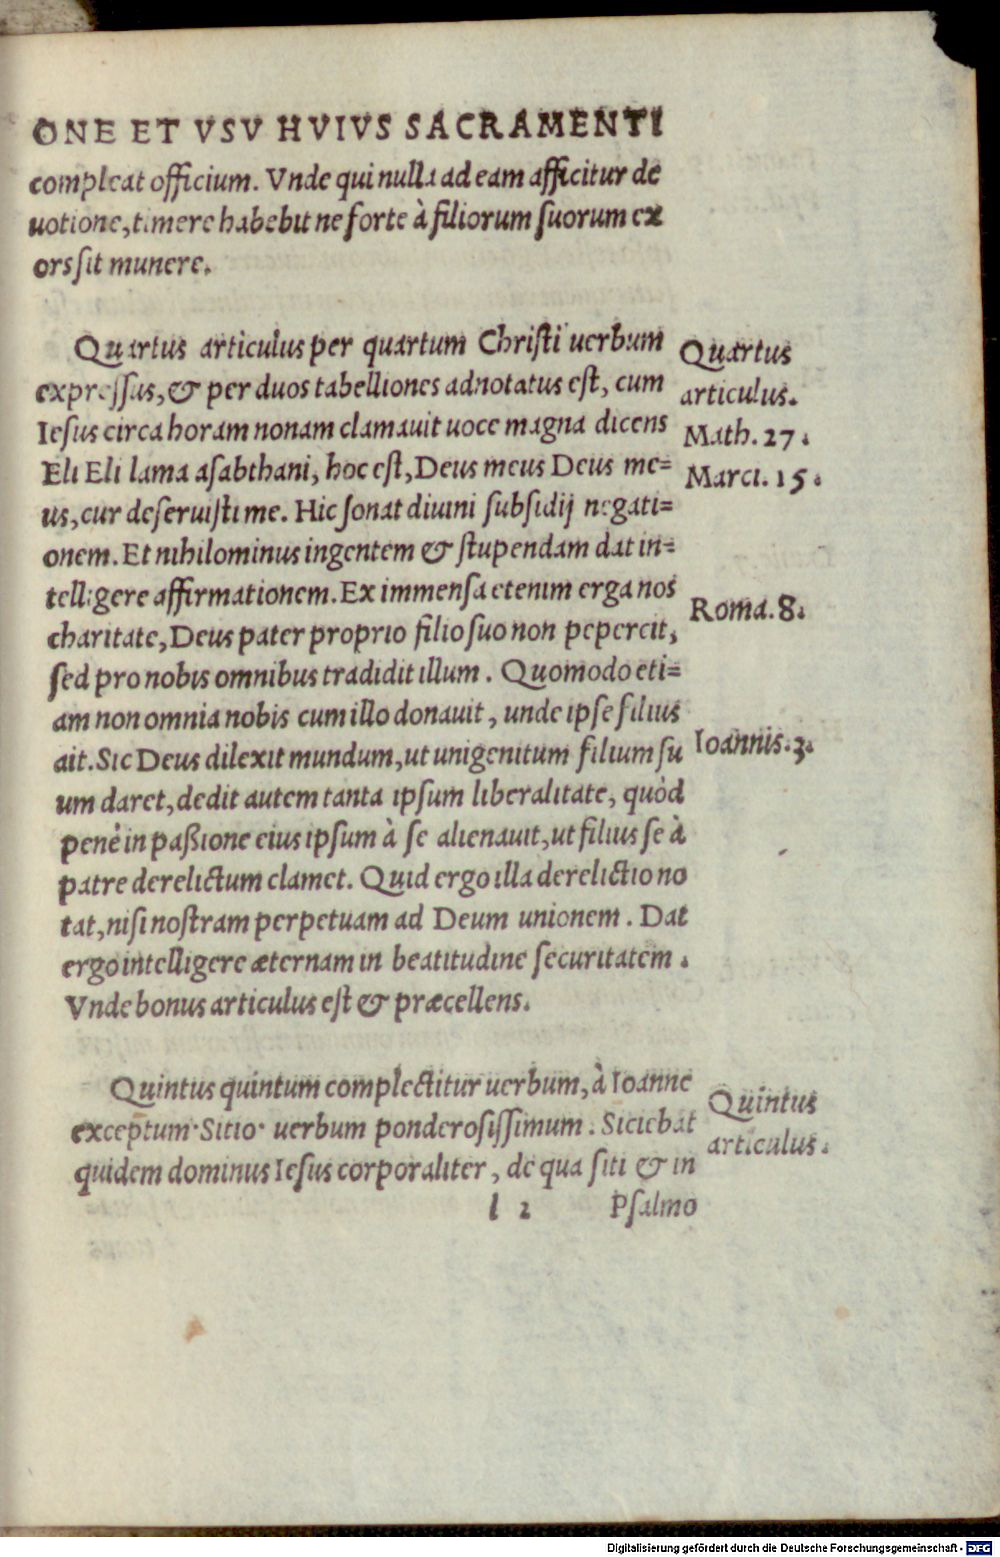 ONE ET VSV HVIVS SACRAMENTI
compleat officium. Vnde qui nulla ad eam afficitur de
uotione, timere habebit ne forte à filiorum suorum ex
ors sit munere.
Quartus articulus per quartum Christi uerbum
expressus, & per duos tabelliones adnotatus est, cum
Iesus circa horam nonam clamauit uoce magna dicens
Eli Eli lama asabthani, hoc est, Deus meus Deus me=
us, cur deseruisti me. Hic sonat diuini subsidij negati=
onem. Et nihilominus ingentem & stupendam dat in=
telligere affirmationem. Ex immensa etenim erga nos
charitate, Deus pater proprio filio suo non pepercit,
sed pro nobis omnibus tradidit illum. Quomodo eti=
am non omnia nobis cum illo donauit, unde ipse filius
ait. Sic Deus dilexit mundum, ut unigenitum filium su
um daret, dedit autem tanta ipsum liberalitate, quòd
penè in paßione eius ipsum à se alienauit, ut filius se à
patre derelictum clamet. Quid ergo illa derelictio no
tat, nisi nostram perpetuam ad Deum unionem. Dat
ergo intelligere æternam in beatitudine securitatem.
Vnde bonus articulus est & præcellens.
Quartus
articulus.
Math. 27.
Marci. 15.
Roma. 8.
Ioannis. 3.
Quintus quintum complectitur uerbum, à Ioanne
exceptum·Sitio· uerbum ponderosissimum. Siciebat
quidem dominus Iesus corporaliter, de qua siti & in
Quintus
articulus.
l 2 Psalmo
Digitalisierung gefördert durch die Deutsche Forschungsgemeinschaft - DFG